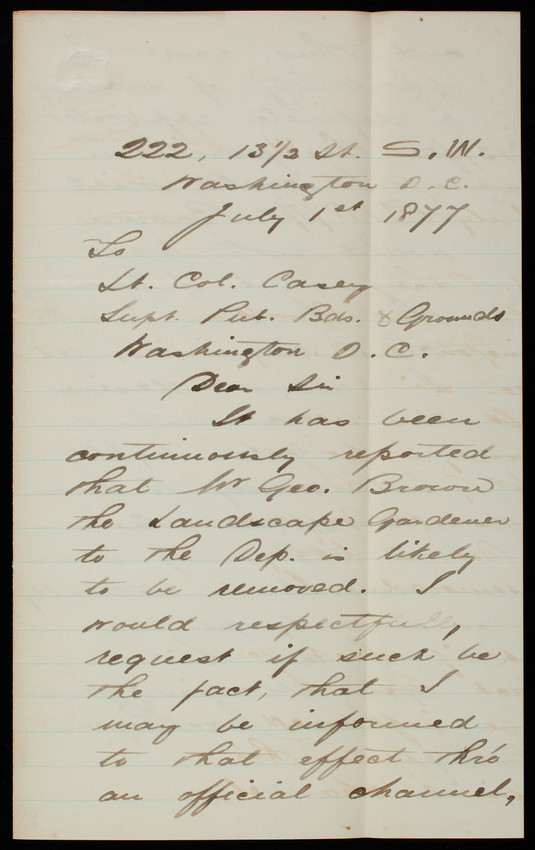 222, 13 1/2 St. S. W.
Washington D. C.
July 1st 1877
To
Lt. Col. Casey
Supt. Pub. Bds. & Grounds
Washington D. C.
Dear Sir
It has been
continuously reported
that Mr Geo. Brown
the Landscape Gardener
to the Dep. is likely
to be removed. I
would respectfully,
request if such be
the fact, that I
may be informed
to that effect thro'
an official channel,